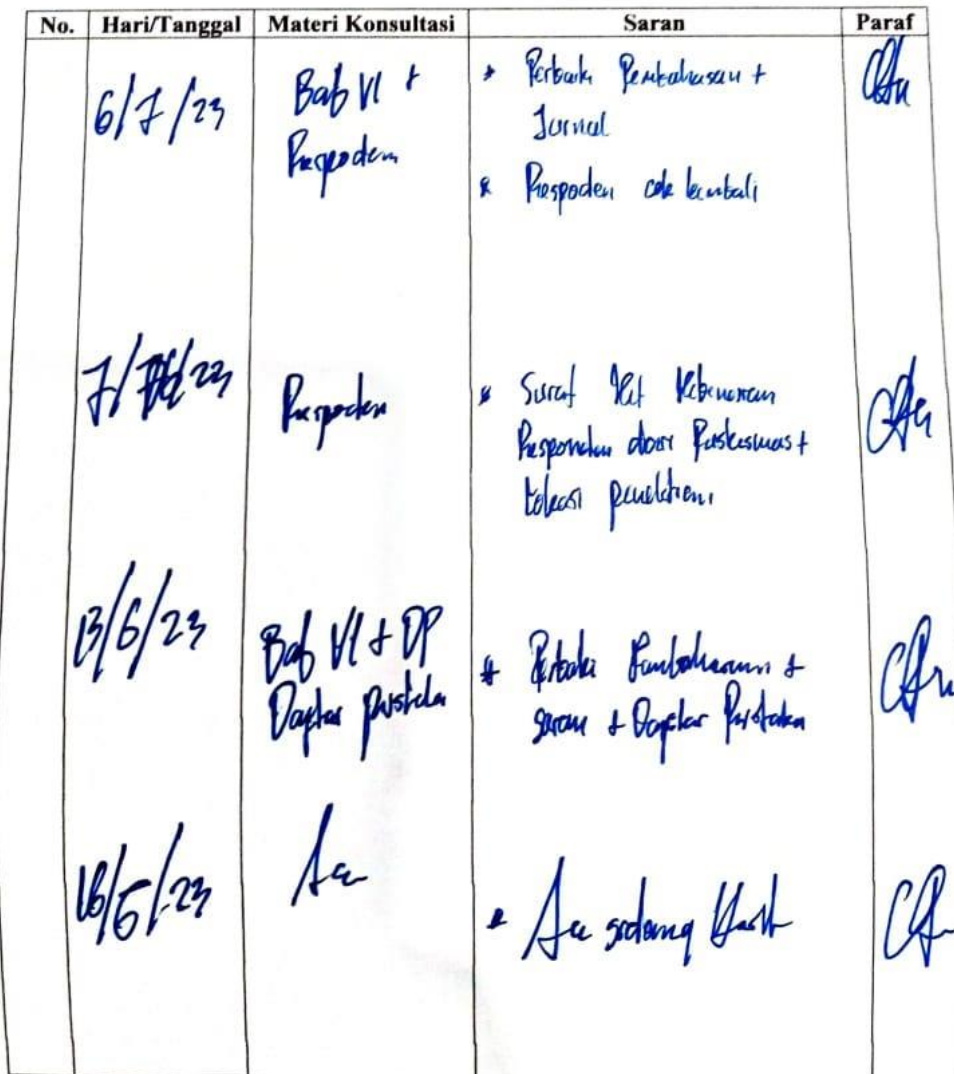 No. Hari/Tanggal Materi Konsultasi Saran Paraf
6/7/23 Bab VI + * Perbaiki Pembahasan +
Respoden Jurnal
* Respoden cek kembali
Respoden * Surat Ket Kebenaran
Responden dari Puskesmas +
Lokasi penelitian
13/6/23 Bab VI + DP * Perbaiki Pembahasan +
Daftar pustaka saran + Daftar Pustaka
/6/23 Acc * Acc sidang Hasil